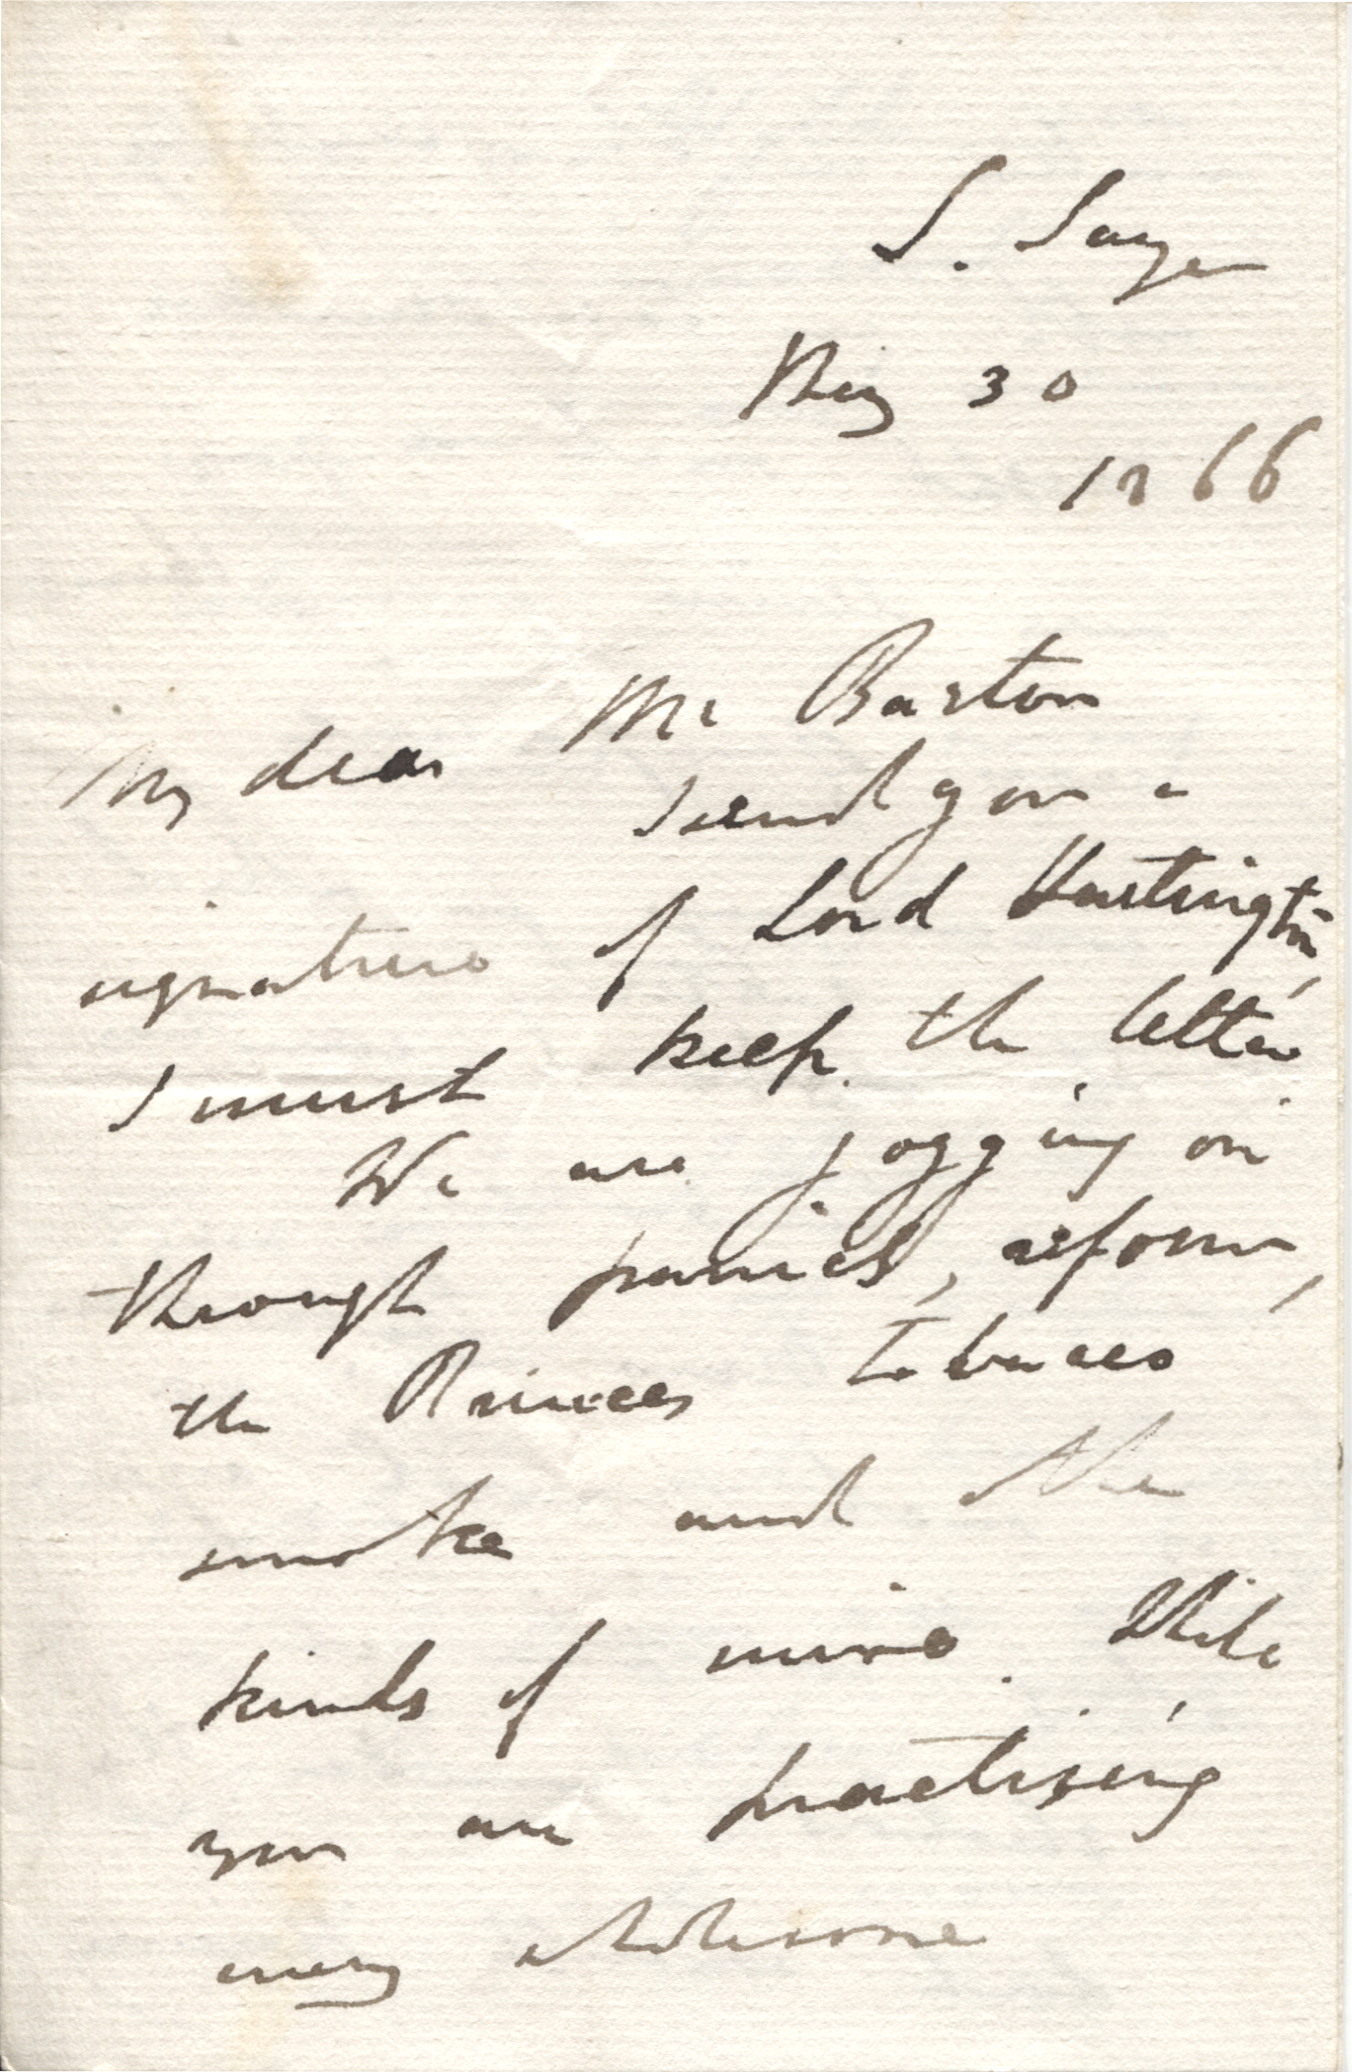 May 30
1866
My dear Mr Barton
I send you a
signature of Lord Hartington,
I must keep the letter.
We are jogging on
through panics, reform,
the Princes Tobacco
smoke and the
kinds of mire. While
you are practising
every wholesome